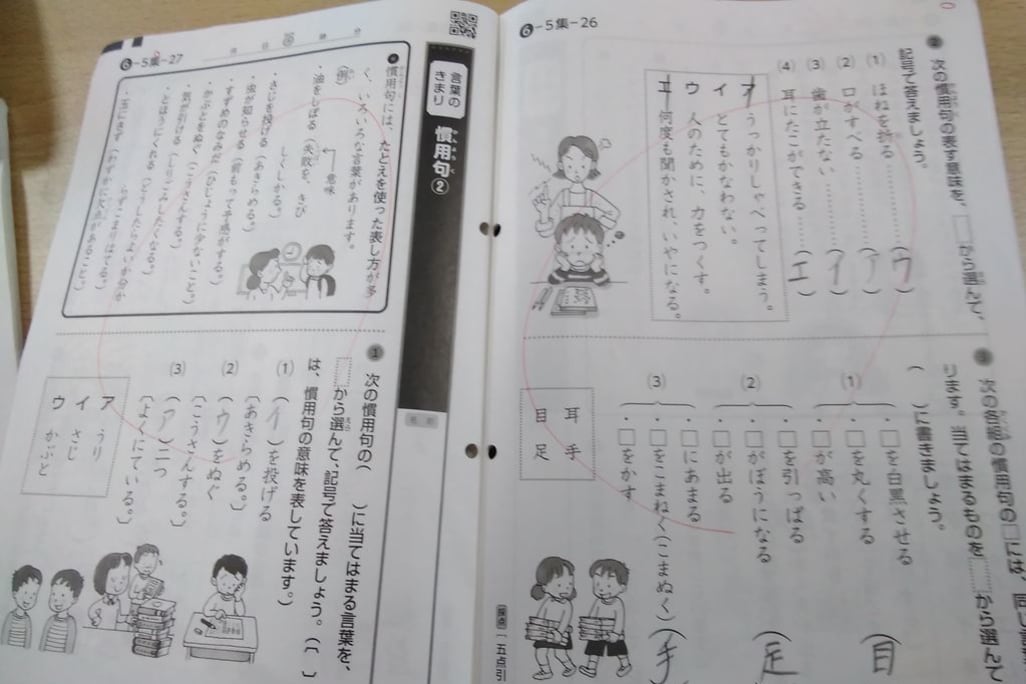 ❻-5集-27
月 日 分
言葉の
きまり
慣用句②
名前
●慣用句には、たとえを使った表し方が多
く、いろいろな言葉があります。
(例)
意味
・油をしぼる(失敗を、きび
しくしかる。)
・さじを投げる(あきらめる。)
・虫が知らせる(前もって予感がする。)
・すずめのなみだ(ひじょうに少ないこと。)
・かぶとをぬぐ(こうさんする。)
・気が引ける(しりごみしたくなる。)
・とほうにくれる(どうしたらよいか分か
らずこまりはてる。)
・玉にきず(わずかに欠点があること。)
❶ 次の慣用句の( )に当てはまる言葉を、
から選んで、記号で答えましょう。(〔 〕
は、慣用句の意味を表しています。)
(1) (イ)を投げる
〔あきらめる。〕
(2) (ウ)をぬぐ
〔こうさんする。〕
(3) (ア)二つ
〔よくにている。〕
ア うり
イ さじ
ウ かぶと
❻-5集-26
❷ 次の慣用句の表す意味を、 から選んで、
記号で答えましょう。
(1) ほねを折る………(ウ)
(2) 口がすべる………(ア)
(3) 歯が立たない……(イ)
(4) 耳にたこができる…(エ)
ア うっかりしゃべってしまう。
イ とてもかなわない。
ウ 人のために、力をつくす。
エ 何度も聞かされ、いやになる。
❸ 次の各組の慣用句の□には、同じ
ります。当てはまるものを から選んで
( )に書きましょう。
(1)
・□を白黒させる
・□を丸くする
・□が高い
(目)
(2)
・□を引っぱる
・□がぼうになる
・□が出る
(足)
(3)
・□にあまる
・□をこまねく(こまぬく)
・□をかす
(手)
耳 手
目 足
採点 一五点引